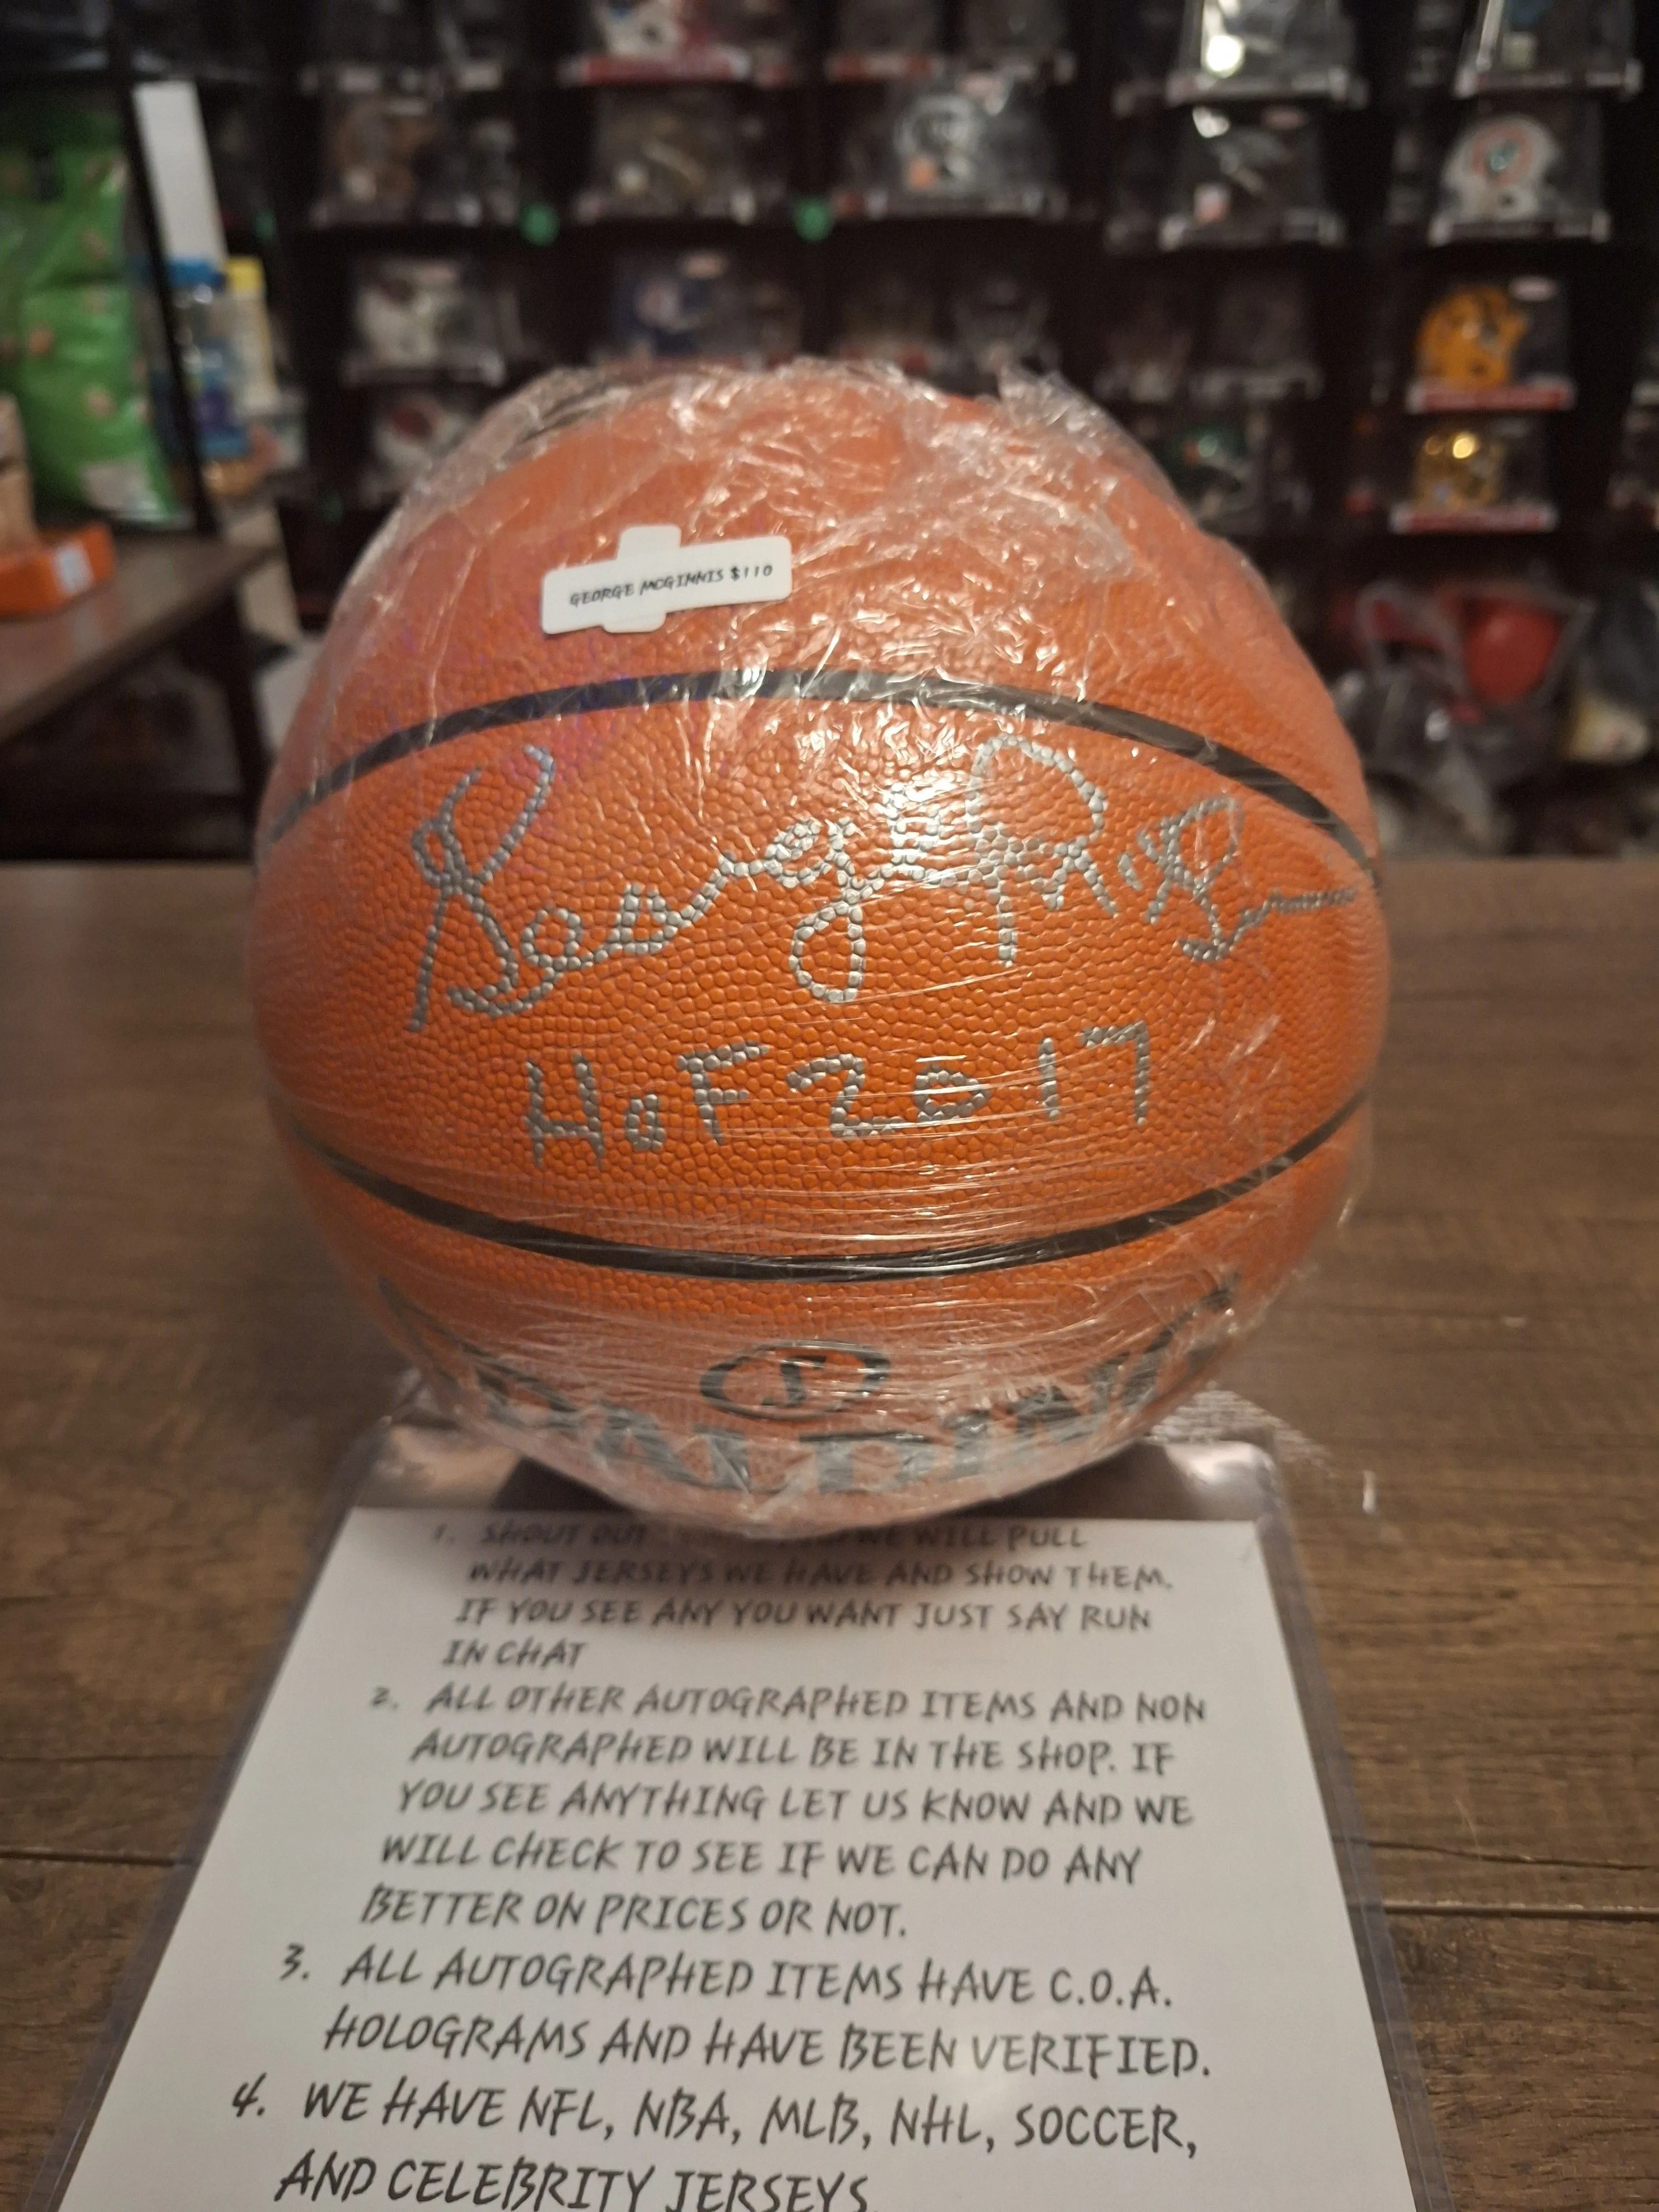 GEORGE MCGINNIS $110
George McGinnis
HOF 2017
SPALDING
1. SHOUT OUT WE WILL PULL
WHAT JERSEYS WE HAVE AND SHOW THEM.
IF YOU SEE ANY YOU WANT JUST SAY RUN
IN CHAT
2. ALL OTHER AUTOGRAPHED ITEMS AND NON
AUTOGRAPHED WILL BE IN THE SHOP. IF
YOU SEE ANYTHING LET US KNOW AND WE
WILL CHECK TO SEE IF WE CAN DO ANY
BETTER ON PRICES OR NOT.
3. ALL AUTOGRAPHED ITEMS HAVE C.O.A.
HOLOGRAMS AND HAVE BEEN VERIFIED.
4. WE HAVE NFL, NBA, MLB, NHL, SOCCER,
AND CELEBRITY JERSEYS.